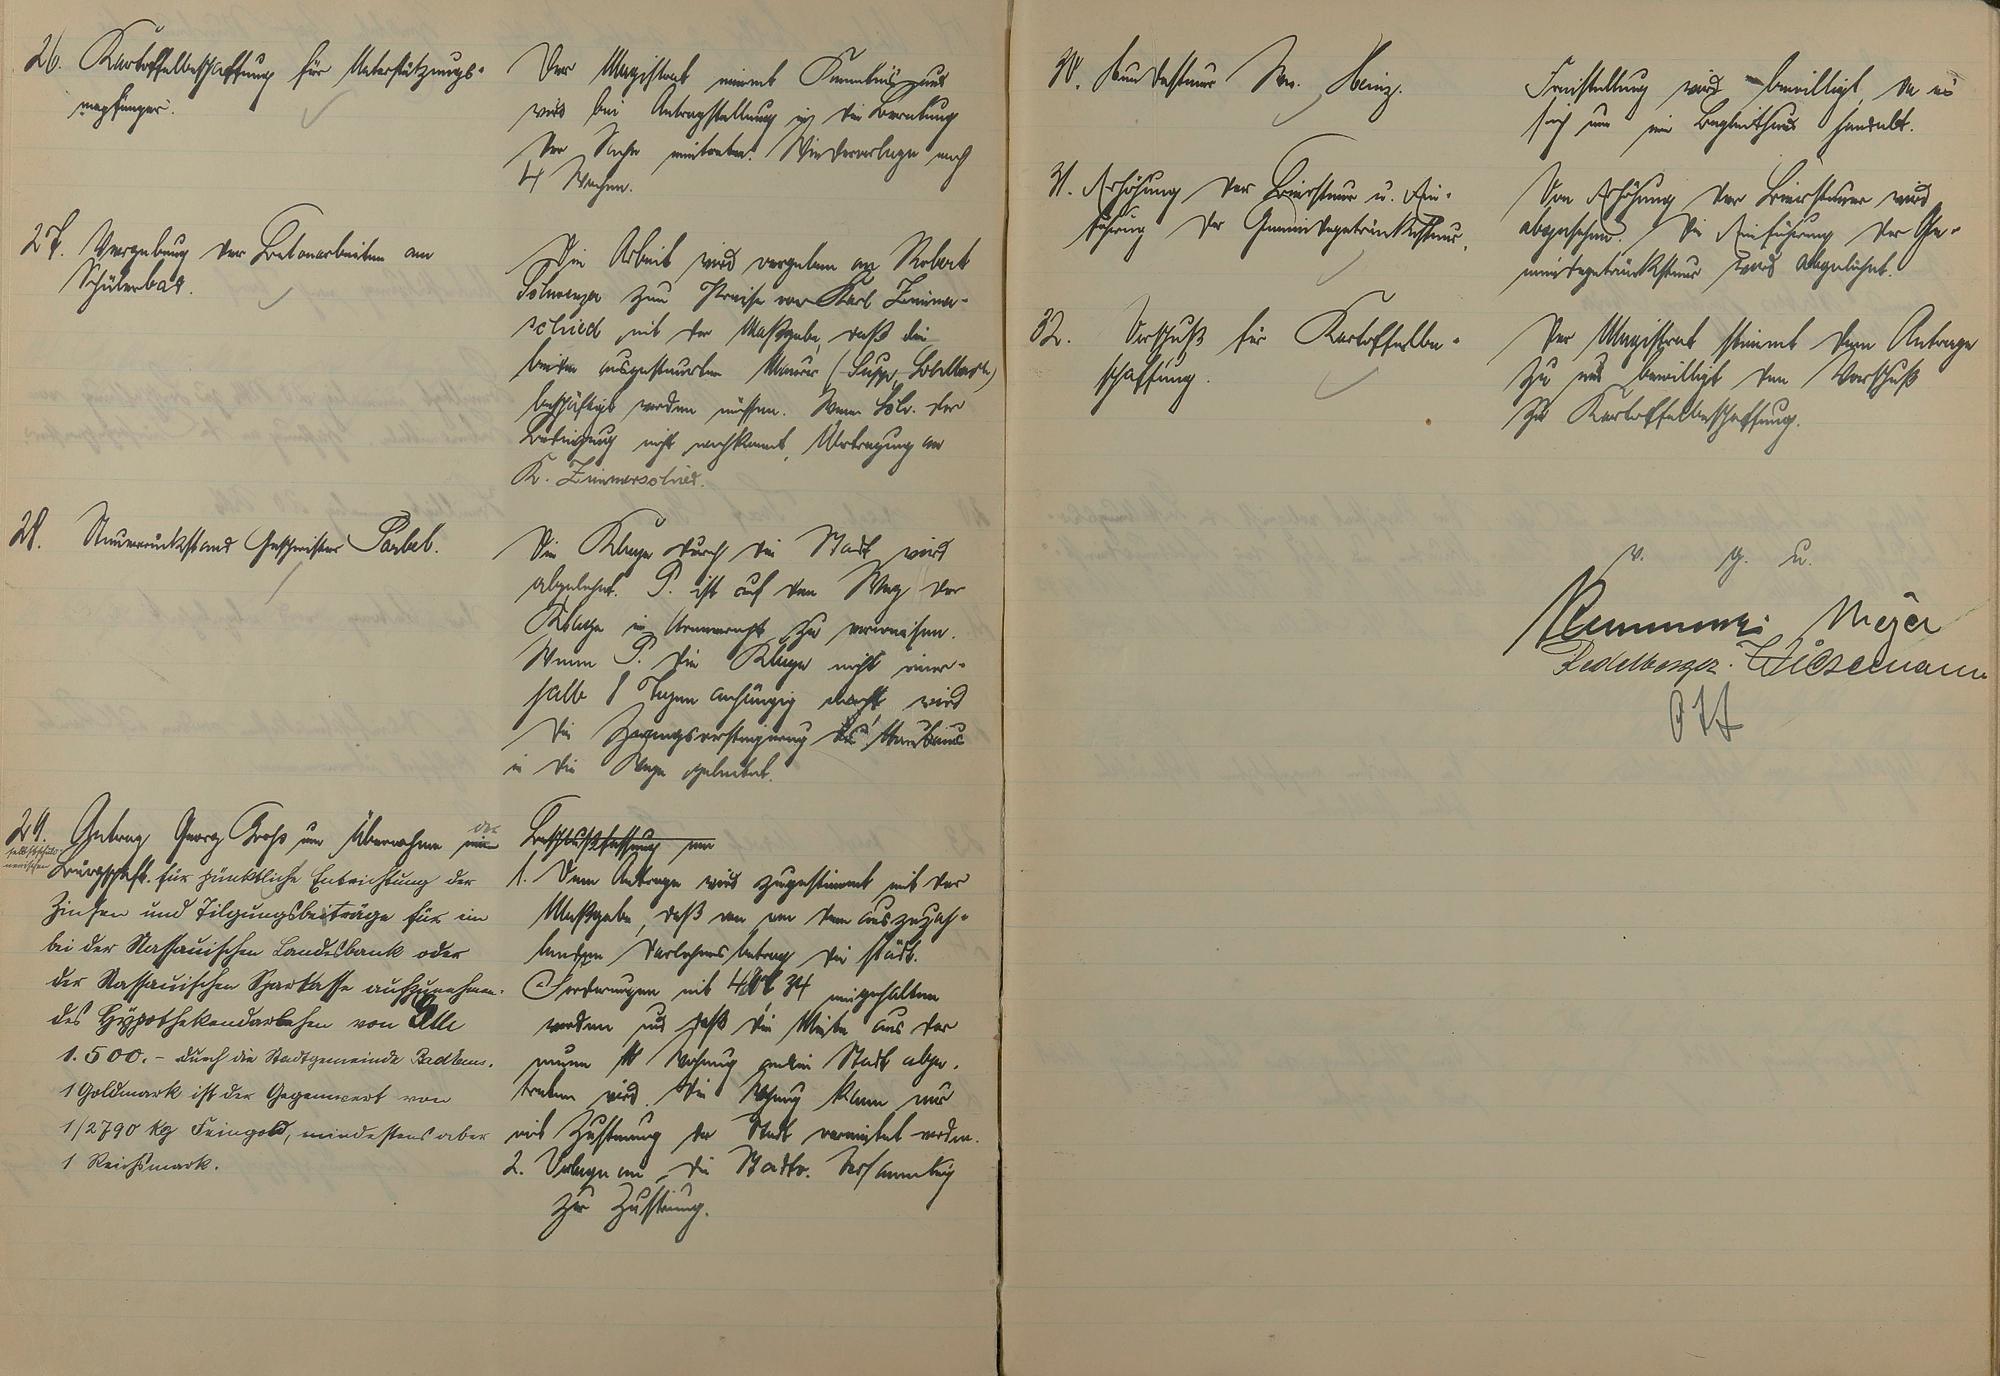 26. Kartoffelbeschaffung für Unterstützungs-
empfänger.
Der Magistrat nimmt Kenntnis und
wird bei Antragstellung in die Beratung
der Sache eintreten. Wiedervorlage nach
4 Wochen.
27. Vergebung der Betonarbeiten am
Schülerbad.
Die Arbeit wird vergeben an Robert
zum Preise von Karl Zimmer-
schied mit der Maßgabe, daß die
beiden ausgesteuerten Maurer
beschäftigt werden müssen. Wenn der
Bedingung nicht nachkommt, Übertragung an
K. Zimmerschied.
28. Steuerrückstand Geschwister
Die Klage durch die Stadt wird
abgelehnt. P. ist auf den Weg der
Klage im Armenrecht zu verweisen.
Wenn P. die Klage nicht inner-
halb 8 Tagen anhängig macht wird
die Zwangsversteigerung des
in die Wege geleitet.
29. Antrag Georg Groß um Übernahme der
selbstschuld-
nerischen
Bürgschaft für pünktliche Entrichtung der
Zinsen und Tilgungsbeiträge für ein
bei der Nassauischen Landesbank oder
der Nassauischen Sparkasse aufzunehmen-
des Hypothekendarlehen von
1.500.- durch die Stadtgemeinde
1 Goldmark ist der Gegenwert von
1/2790 kg Feingold, mindestens aber
1 Reichsmark.
Beschlußfassung
1. Dem Antrage wird zugestimmt mit der
Maßgabe, daß von dem auszuzah-
lenden Darlehensbetrag die städt.
Forderungen mit eingehalten
werden und daß die Miete aus der
neuen Wohnung an die Stadt abge-
treten wird. Die Wohnung kann nur
mit Zustimmung der Stadt vermietet werden.
2. Vorlage an die Stadtv. Versammlung
zur Zustimmung.
30. Hundesteuer Heinz.
Freistellung wird bewilligt, da es
sich um ein handelt.
31. Erhöhung der Biersteuer u. Ein-
führung der Gemeindegetränkesteuer.
Von Erhöhung der Biersteuer wird
abgesehen. Die Einführung der Ge-
meindegetränksteuer wird abgelehnt.
32. Vorschuß für Kartoffelbe-
schaffung.
Der Magistrat stimmt dem Antrage
zu und bewilligt den Vorschuß
zur Kartoffelbeschaffung.
v. g. u.
Meyer
Wiesemann
Ott